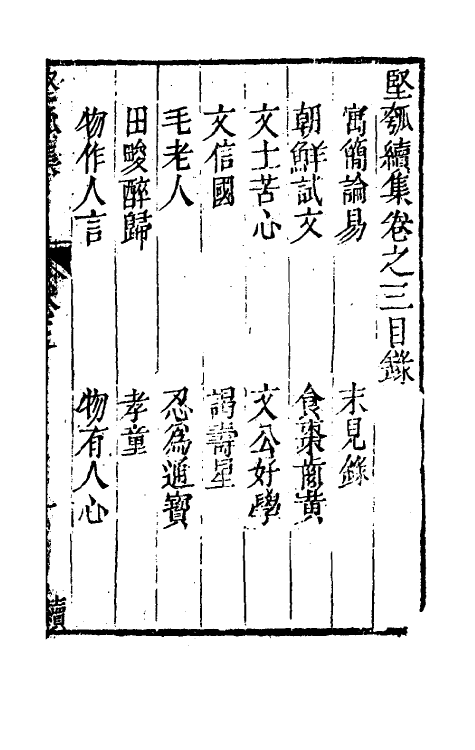 堅瓠續集卷之三目錄
寓簡論易　末見錄
朝鮮試文　食棗齒黃
文士苦心　文公好學
文信國　謁壽星
毛老人　忍為通寶
田畯醉歸　孝童
物作人言　物有人心
續